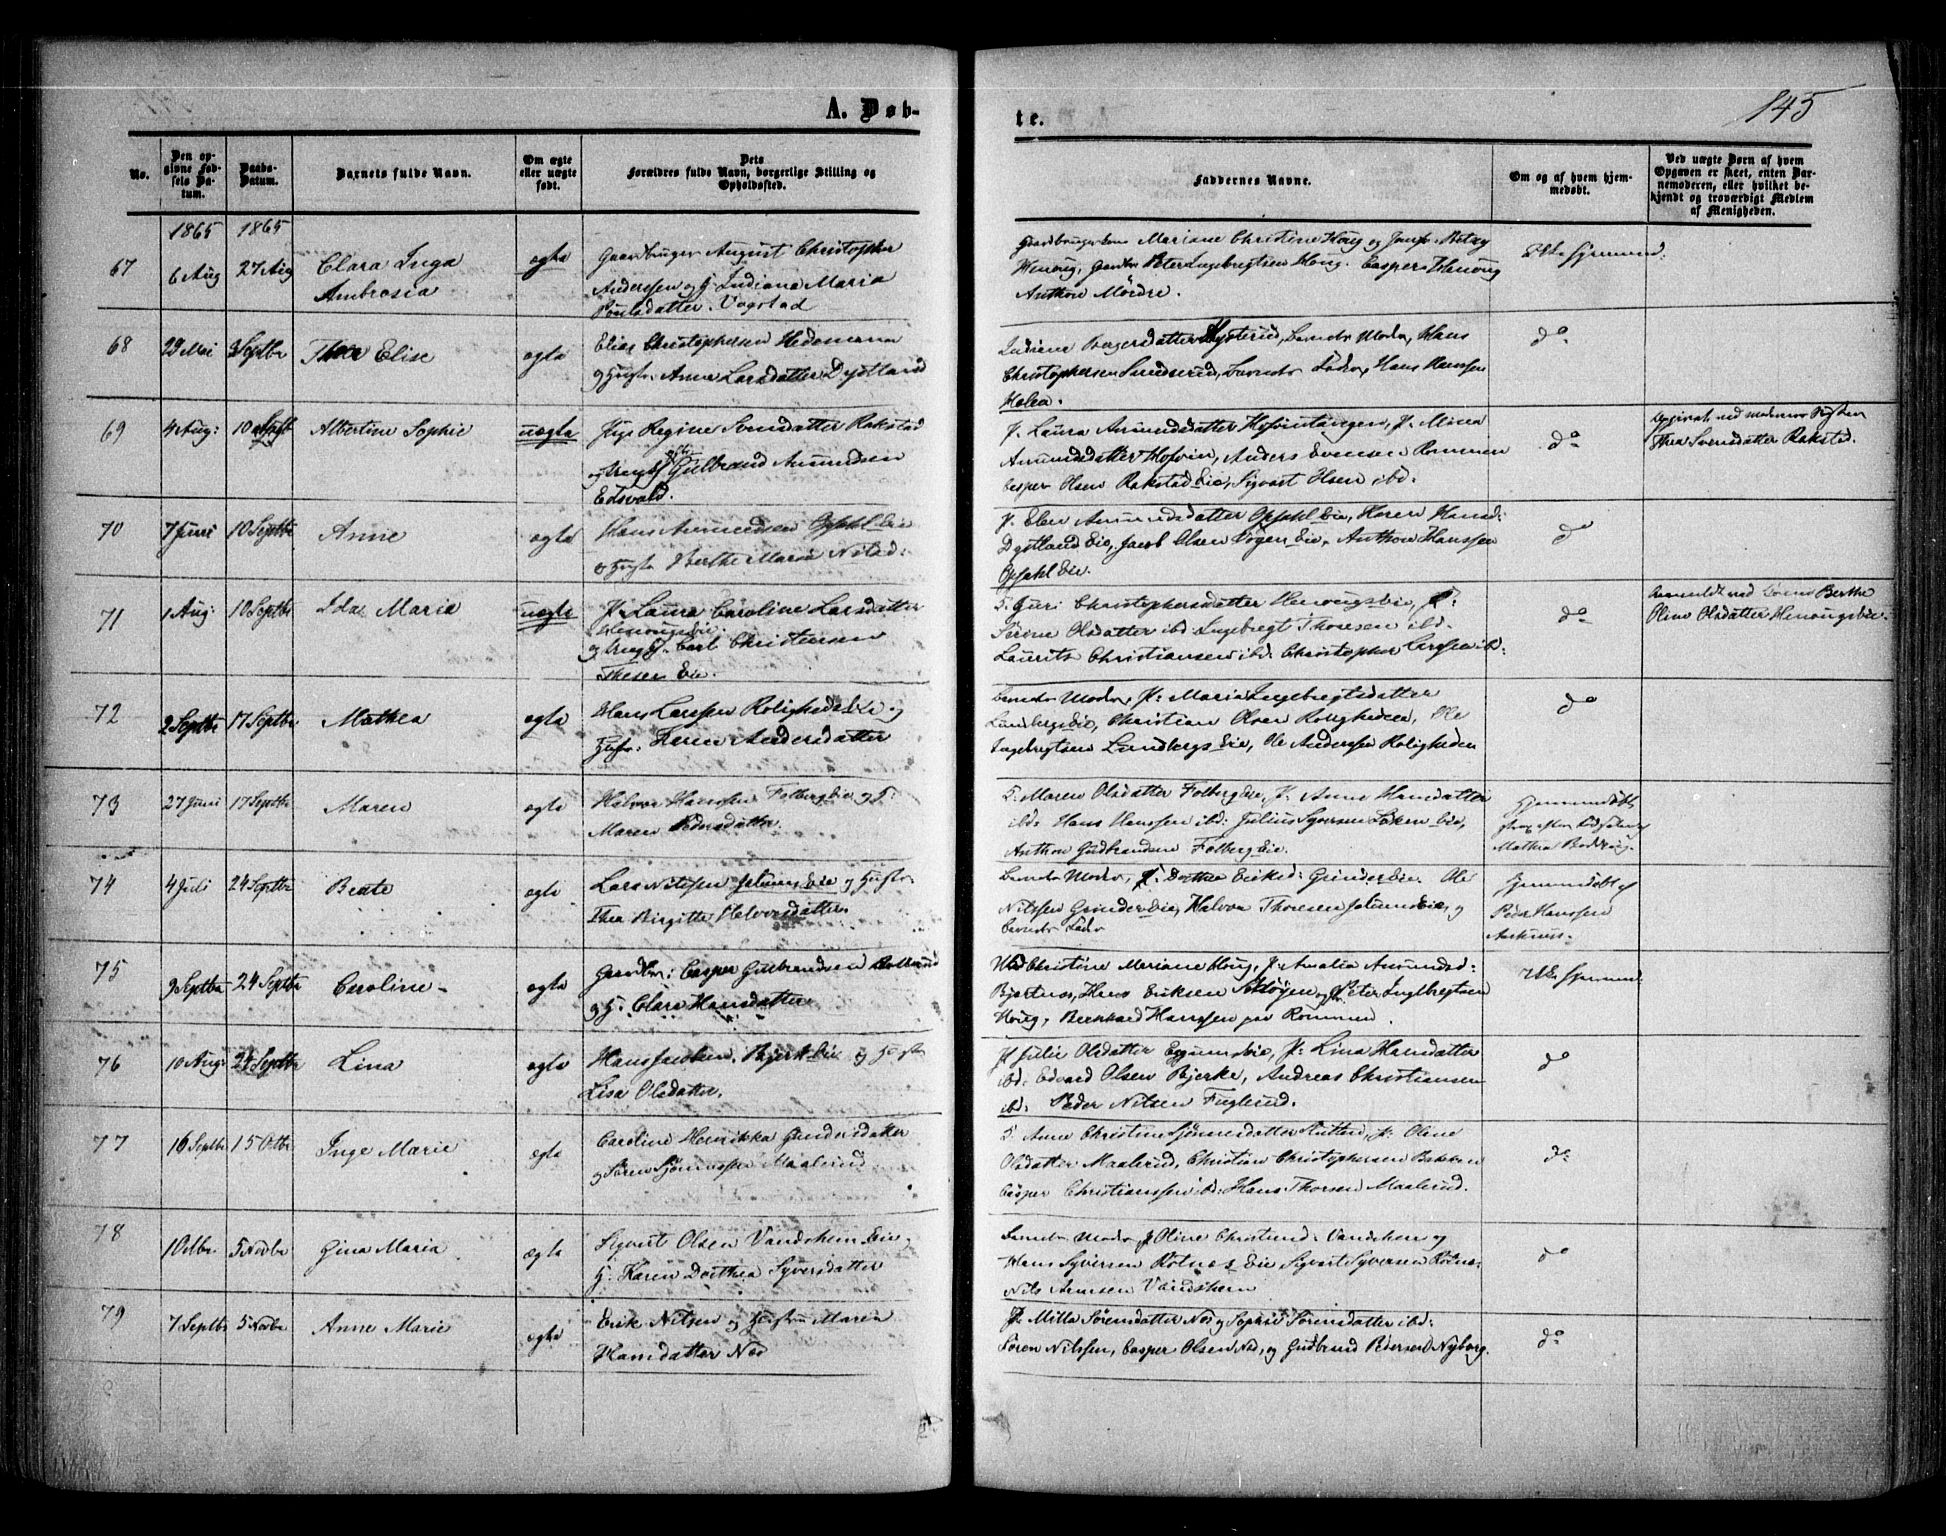 A. Døb-
te.
145
No.
Den opgivne Fødsels Datum.
Daabs-Datum.
Barnets fulde Navn.
Om ægte eller uægte født.
Dets Forældres fulde Navn, borgerlige Stilling og Opholdssted.
Faddernes Navne.
Om og af hvem hjemmedøbt.
Ved uægte Børn af hvem Opgaven er skeet, enten Barnemoderen, eller hvilket bekjendt og troværdigt Medlem af Menigheden.
1865 1865
67 6 Aug 27 Aug Clara Inga
Ambrosia
ægte
Gaardbruger August Christopher
Andersen og H. Indiana Maria
Poulsdatter. Vogstad
Mariane Christine Houg og
Peter Ingebregtsen Houg. Casper Henoug
Anthon Mørdre.
Ikke hjemmed.
68 29 Mai 3 Septbr Thea Elise
ægte
Elias Christophersen Hedemann
og Hustr: Anne Larsdatter Dystland
Indiane Hans
Christophersen Hans Hanssen
Holen.
do
69 4 Aug: 10 Septbr Albertine Sophie
uægte
Pige Regine Svensdatter Rakstad
og Ungk Gulbrand Amundsen
Eidsvold.
P. Laura Amundsdatter P. Mina
Amundsdatter Hofvin, Anders Evensen Rommen
Casper Olsen Rakstadeie, Sigvart Olsen ibd:
do
Thea Svensdatter Rakstad.
70 7 Juni 10 Septbr Anne
ægte
Hans Amundsen Opsahl Eie
og Hustr Berthe Maria Nilsd:
P. Elen Amundsdatter Opsahl Eie, Karen Hansd:
Dystland Eie, Jacob Olsen Eie, Anthon Hanssen
Opsahl Eie.
do
71 1 Aug: 10 Septbr Ida Maria
uægte
P. Laura Caroline Larsdatter
Henougseie:
og Ungk. Carl Christensen
Eie.
Guri Christophersdatter Henougseie, P:
Sørine Olsdatter ibd. Ingebregt Thoresen ibd.
Laurits Christiansen ibd: Christopher Larssen ibd:
do
Anmeldt ved Berthe
Oline Olsdatter Henougseie.
72 2 Septbr 17 Septbr Mathea
ægte
Hans Larssen Roligheds Eie og
Hustr: Karen Andersdatter
Barnets Moder, P: Maria Ingebregtsdatter
Lundbergseie, Christian Olsen Roligheden, Ole
Ingebregtsen Lundbergs Eie, Ole Anderssen Roligheden
do
73 27 Juni 17 Septbr Maren
ægte
Halvor Hanssen Folberg Eie og H:
Maren Pedersdatter
Maren Olsdatter Folberg Eie, P. Anne Hansdatter
ibd: Hans Hanssen ibd: Julius Syversen Løken Eie,
Anthon Gudbrandsen Folberg Eie.
Hjemmedøbt
strax efter
Mathea
74 4 Juli 24 Septbr Beate
ægte
Lars Nilssen Eie og Hustr:
Thea Birgitte Halvorsdatter
Barnets Moder, P. Dorthe Eriksd: Grinder Eie. Ole
Nilssen Grinder Eie, Halvor Thoresen og
Barnets Fader
Hjemmedøbt af
Peder Hanssen
75 9 Septbr 24 Septbr Caroline
ægte
Gaardbr: Casper Gulbrandsen
og H. Clara Hansdatter
Christine Mariane Houg, P. Amalia Amundsd:
Bjertnes, Hans Eriksen og Peter Ingebregtsen
Houg, Bernhard Hanssen paa Rommen.
Ikke hjemmed.
76 10 Aug: 24 Septbr Lina
ægte
Hans Jacobsen. Bjerk Eie og Hustr
Lisa Olsdatter.
P. Julie Olsdatter P: Lina Hansdatter
ibd: Edvard Olsen Bjerke, Andreas Christiansen
ibd: Peder Nilsen Fuglerud.
do
77 16 Septbr 15 Octbr Inge Marie
ægte
Caroline Henrikka Gundersdatter
og Søren Maalerud
Anne Christine P. Oline
Olsdatter Maalerud, Christian Christophersen Bakken
Casper Christianssen ibd: Hans Thorsen Maalerud.
do
78 1 Octbr 5 Novbr Gina Maria
ægte
Sigvart Olsen Vandshem Eie og
H. Karen Dorthea Syversdatter
Barnets Moder, P Oline Vandshem og
Hans Syversen Rotnes Eie Sigvart Syversen
Nils Arnesen Vandshem
do
79 7 Septbr 5 Novbr Anne Marie
ægte
Erik Nilsen og Hustru Maren
Hansdatter Nos
P. Mitla Sørensdatter Nos og Sophie Sørensdatter ibd:
Søren Nilssen, Casper Olsen Nos, og Gudbrand Pedersen Nyborg.
do